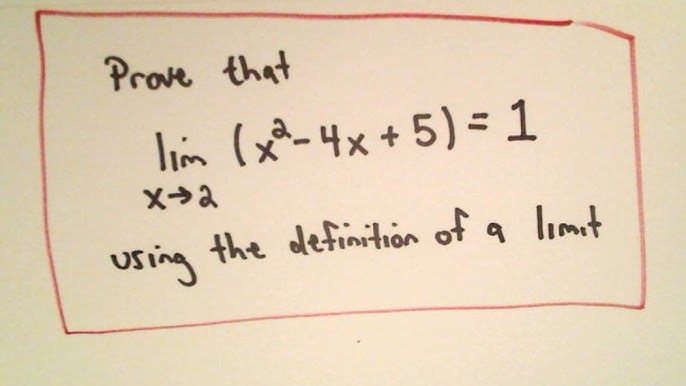 Prove that
lim (x² - 4x + 5) = 1
x→2
using the definition of a limit